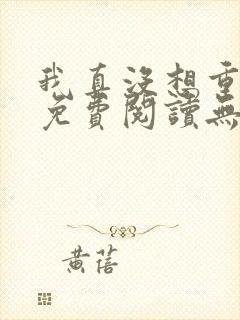 我真沒想重
免費閱讀無
黃蓓